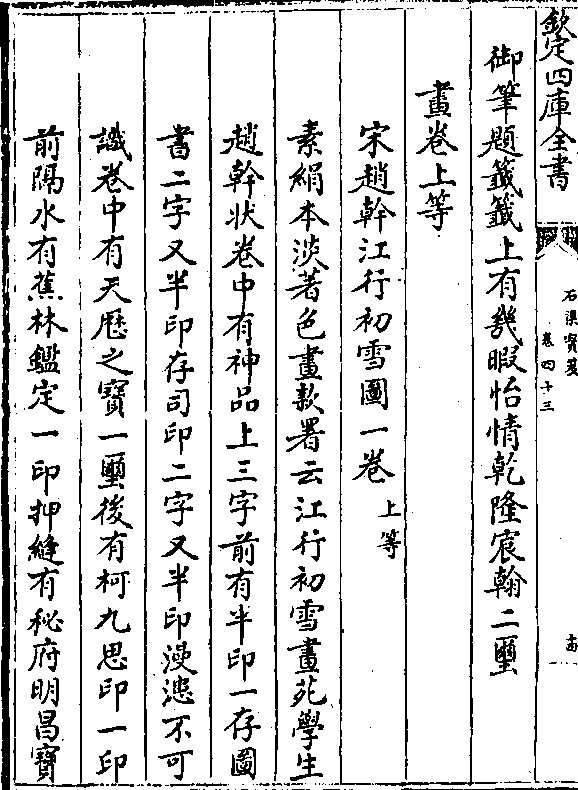 欽定四庫全書
石渠寶笈
卷四十三
御筆題籤籤上有幾暇怡情乾隆宸翰二璽
畫卷上等
宋趙幹江行初雪圖一卷 上等
素絹本淡著色畫款署云江行初雪畫苑學生
趙幹狀卷中有神品上三字前有半印一存圖
書二字又半印存司印二字又半印漫漶不可
識卷中有天歷之寶一璽後有柯九思印一印
前隔水有蕉林鑑定一印押縫有秘府明昌寶